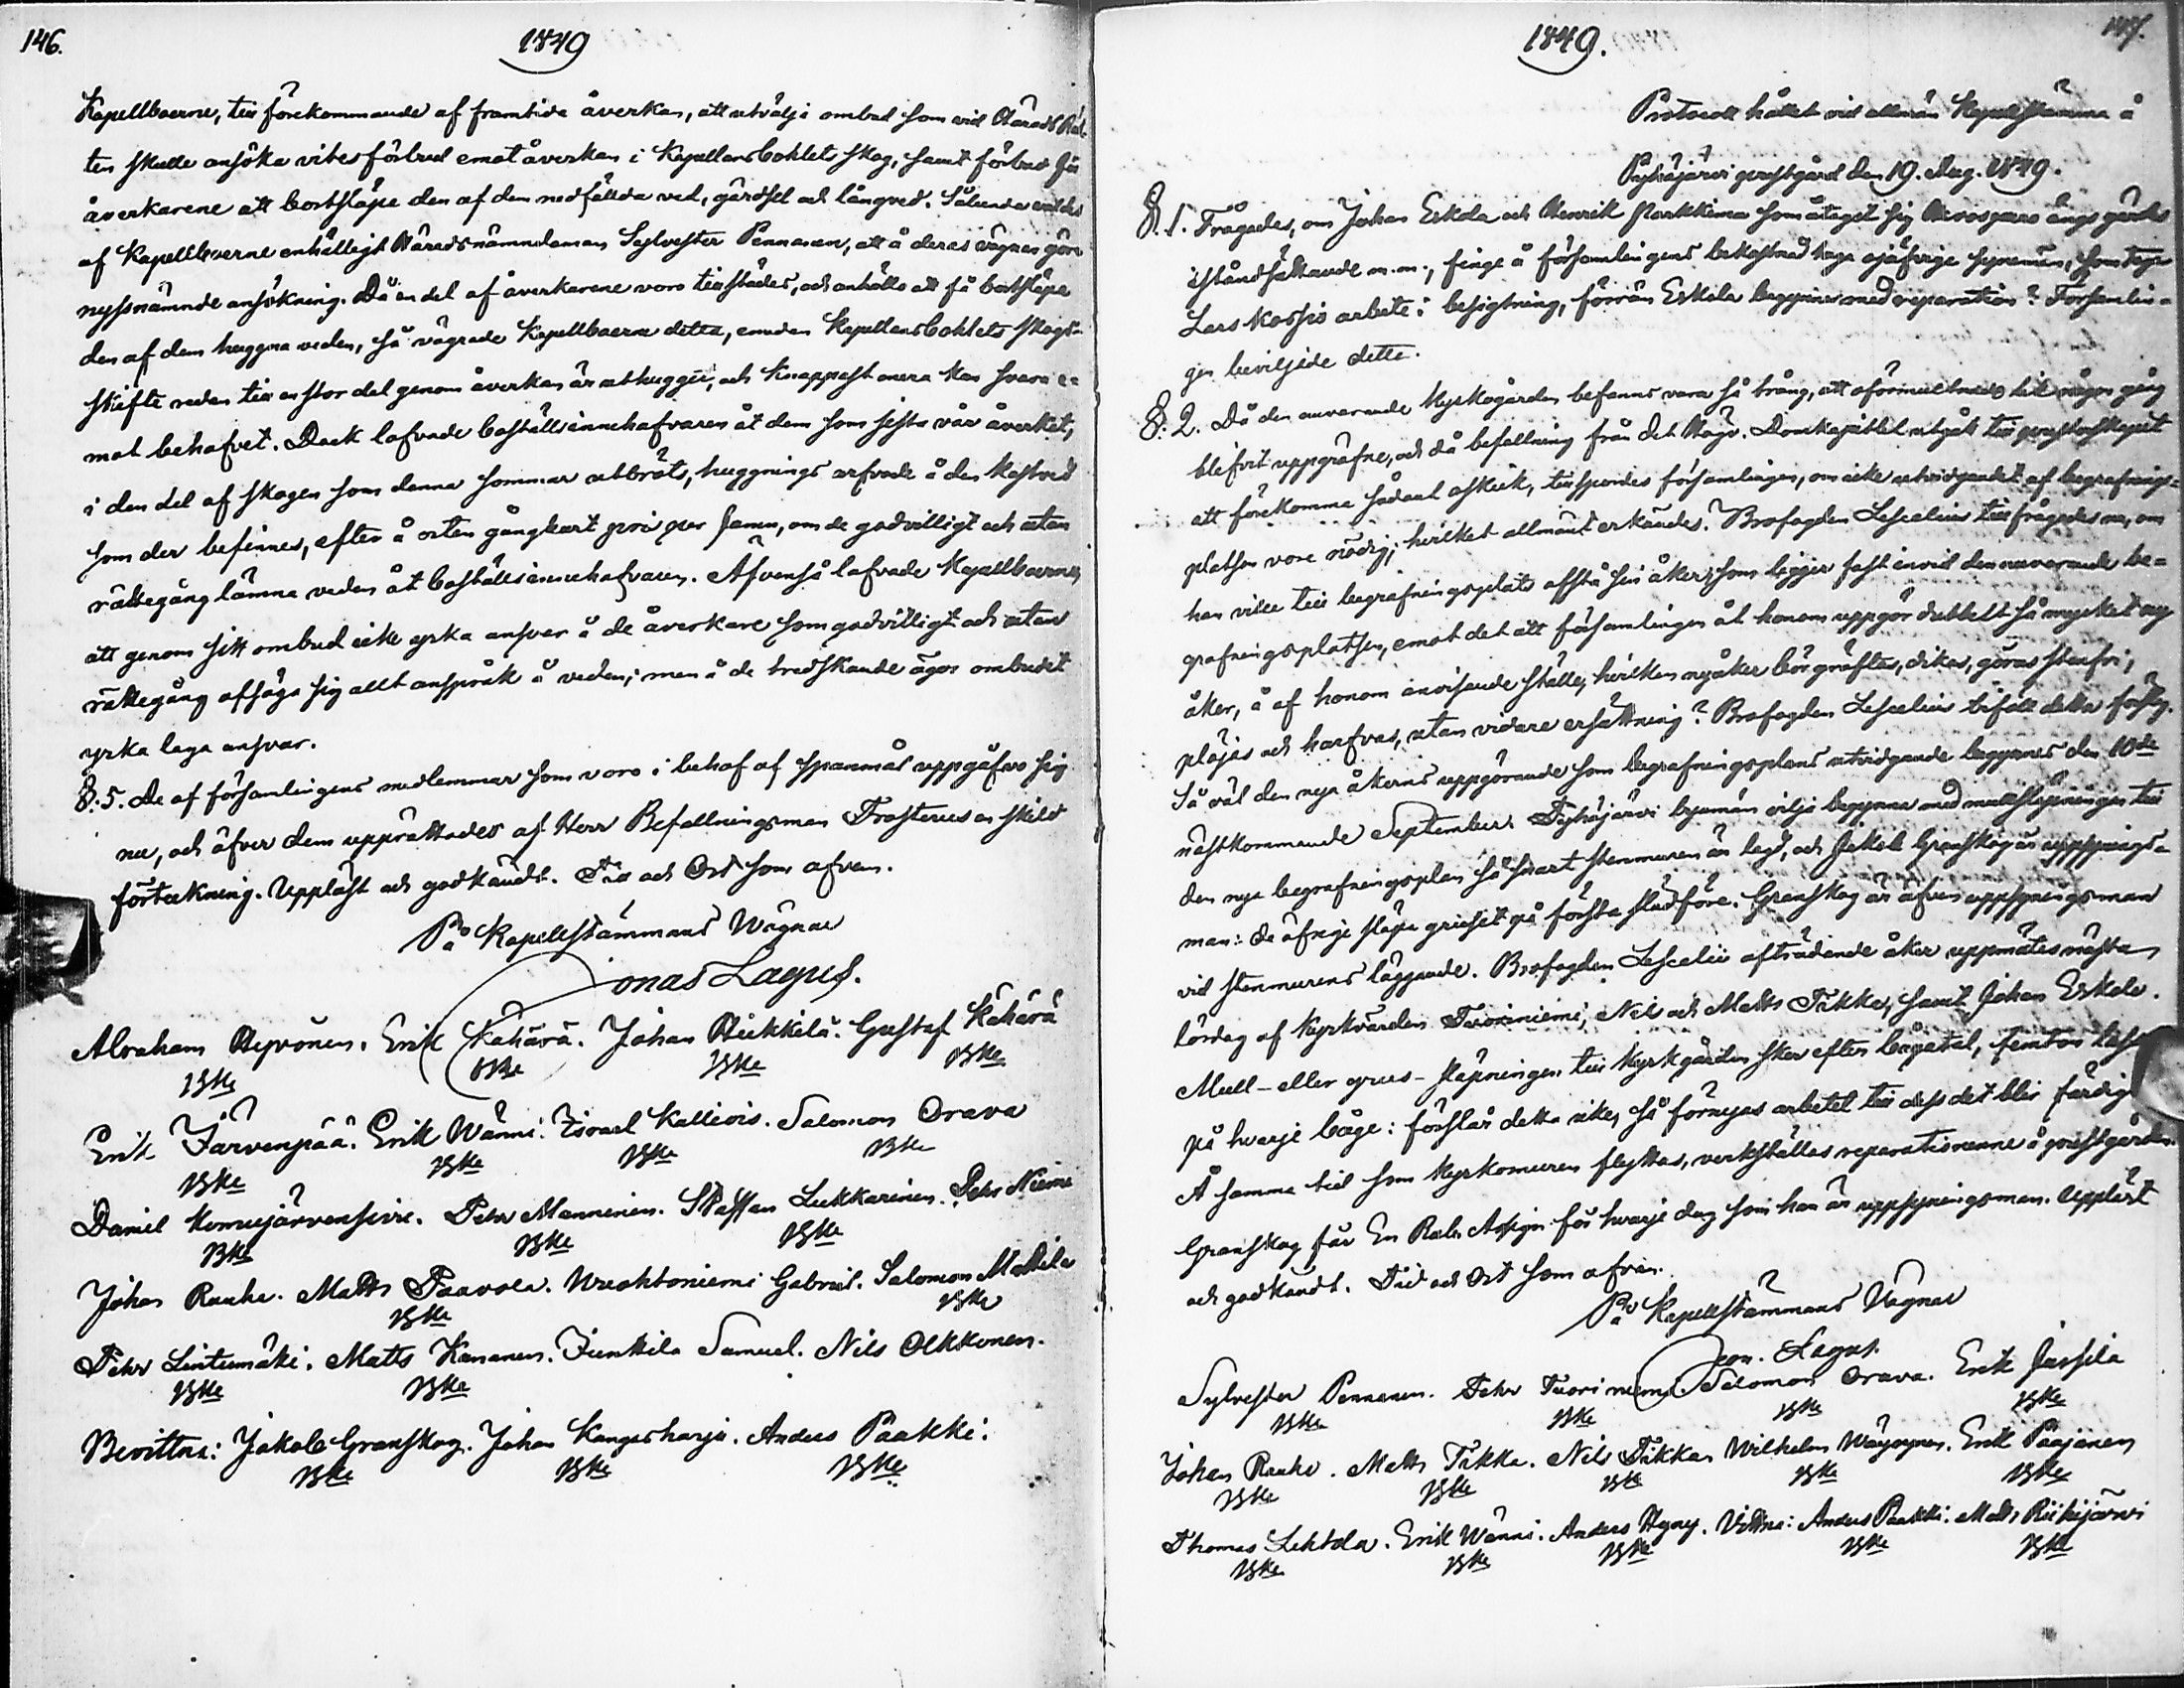 146.
1849
Kapellboerne, till förekommande af framtida åverkan, att utvälja ombud som vid Härads Rät-
ten skulle ansöka vites förbud emot åverkan i Kapellansbohlets skog, samt förbud för
åverkarene att bortsläpa den af dem nedfällda ved, gärdsel och långved. Sålunda valdes
af Kapellboerne enhälligt Häradsnämndeman Sylvester Pennanen, att å deras vägnar göra
nyssnämnde ansökning. Då en del af åverkarene voro tillstädes, och anhöllo att få bortsläpa
den af dem huggna veden, så vägrade Kapellboerne detta, emedan Kapellansbohlets skogs-
skifte redan till en stor del genom åverkan är uthuggit, och knappast mera kan svara e-
mot behofvet. Dock lofvade boställsinnehafvaren åt dem som sista vår åverkat,
i den del af skogen som denna sommar utbröts, huggnings arfvode å den kastved
som der befinnes, efter å orten gångbart pris per famn, om de godvilligt och utan
rättegång lämna veden åt boställsinnehafvaren. Äfvenså lofvade Kapellboerne,
att genom sitt ombud icke yrka ansvar å de åverkare som godvilligt och utan
rättegång afsäga sig allt anspråk å veden; men å de tredskande äger ombudet
yrka laga ansvar.
§:5. De af församlingens medlemmar som voro i behof af spannmål uppgåfvo sig
nu, och öfver dem upprättades af Herr Befallningsman Frosterus en skild
förteckning. Uppläst och godkändt. Tid och Ort som ofvan.
På Kapellstämmans Wägnar
Jonas Lagus.
Abraham Hyvönen. Erik Kähärä. Johan Heikkilä. Gustaf Kähärä
BMke BMke BMke BMke
Erik Järvenpää. Erik Wänni. Israel Kalliois. Salomon Orava
BMke BMke BMke BMke
Daniel Komujärvensivu. Pehr Manninen. Staffan Leskkarinen. Pehr Niemi
BMke BMke BMke
Johan Rauhe. Matts Paavola. Wuohtoniemi Gabriel. Salomon Mattila
BMke BMke
Pehr Lintumäki. Matts Kananen. Junttila Samuel. Nils Olkkonen.
BMke BMke
Bevittna: Jakob Granskog. Johan Kangasharju. Anders Paakki.
BMke BMke BMke
1849.
147.
Protocoll hållet vid allmän Kapellstämma å
Pyhäjärvi prestgård den 19. Aug. 1849.
§.1. Frågades, om Johan Eskola och Henrik Parkkima som åtagit sig ängs gärdes
iståndsättande m.m., finge å församlingens bekostnad taga ojäfvige synemän, som toge
Lars Kossis arbete i besigtning, förrän Eskola begynner med reparation? Församlin-
gen beviljade detta.
§:2. Då den nuvarande Kyrkogården befanns vara så trång, att oförmultnade lik någon gång
blifvit uppgräfne, och då befallning från det Högv. Domkapitlet utgått till prosterskapet
att förekomma sådant oskick, tillspordes församlingen, om icke utvidgandet af begrafnings-
platsen vore nödig; hvilket allmänt erkändes. Brofogden Lescelius tillfrågades nu, om
han ville till begrafningsplats afstå sin åker, som ligger fast invid den nuvarande be-
grafningsplatsen, emot det att församlingen åt honom uppgör dubbelt så mycket ny
åker, å af honom anvisande ställe, hvilken nyåker bör gräftas, dikas, göras stenfri,
plöjas och harfvas, utan vidare ersättning? Brofogden Lescelius biföll detta förslag.
Så väl den nya åkerns uppgörande som begrafningsplans utvidgande begynnes den 10de
nästkommande September. Pyhäjärvi byamän vilja begynna med mullsläpningen till
den nya begrafningsplan så snart stenmuren är lagd, och Jakob Granskog är uppsynings-
man: de öfrige släpa gruset på första slädföre. Granskog är äfven uppsyningsman
vid stenmurens läggande. Brofogden Lescelii afträdande åker uppmätes nästa
lördag af Kyrkvärden Tuoriniemi, Nils och Matts Tikka, samt Johan Eskola.
Mull- eller grus- släpningen till Kyrkgården sker efter bågatal, femton lass
på hvarje båge: förslår detta icke, så förnyas arbetet till dess det blir färdigt
Å samma tid som Kyrkomuren flyttas, verkställas reparationerne å prestgården.
Granskog får En Rub. Assign. för hvarje dag som han är uppsyningsman. Uppläst
och godkändt. Tid och Ort som ofvan.
På Kapellstämmans Vägnar
Jon. Lagus.
Sylvester Pennanen. Pehr Tuoriniemi. Salomon Orava. Erik Jussila
BMke BMke BMke BMke
Johan Rauhe. Matts Tikka. Nils Tikka. Wilhelm Wäyrynen. Erik Paajanen
BMke BMke BMke BMke BMke
Thomas Lehtola. Erik Wänni. Anders Hyny. Vittna: Anders Paakki. Matts Riihijärvi
BMke BMke BMke BMke BMke